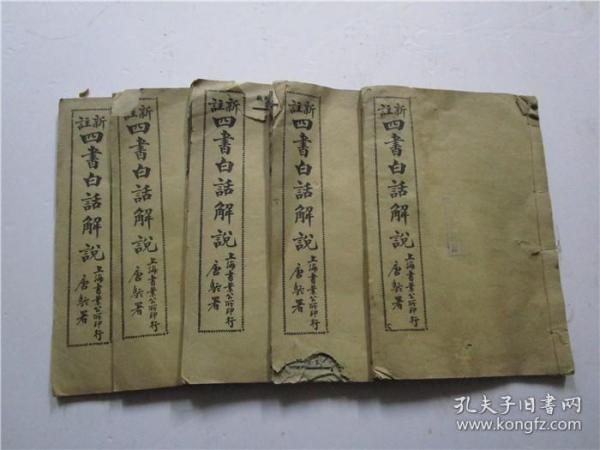 新註四書白話解說
上海書業公所印行
唐駝署
新註四書白話解說
上海書業公所印行
唐駝署
新註四書白話解說
上海書業公所印行
唐駝署
新註四書白話解說
上海書業公所印行
唐駝署
新註四書白話解說
上海書業公所印行
唐駝署
孔夫子旧书网
www.kongfz.com